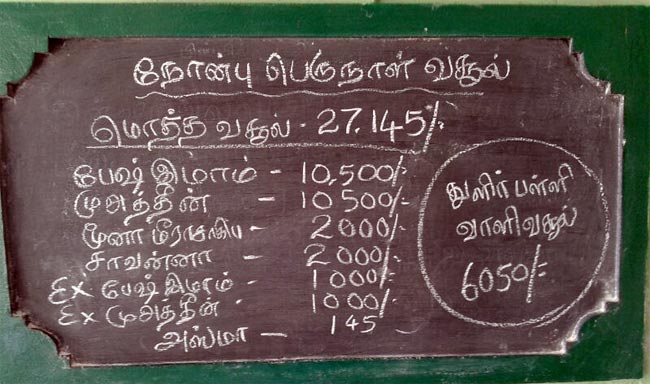 நோன்பு பெருநாள் வசூல்
மொத்த வசூல் - 27.145/-
பேஷ் இமாம் - 10,500/-
முஅத்தீன் - 10500/-
மூனா மீராசாகிய - 2000/-
சாவன்னா - 2000/-
Ex பேஷ் இமாம் - 1000/-
Ex முஅத்தீன் - 1000/-
அஸ்மா - 145
துளிர் பள்ளி
வாளி வசூல்
6050/-